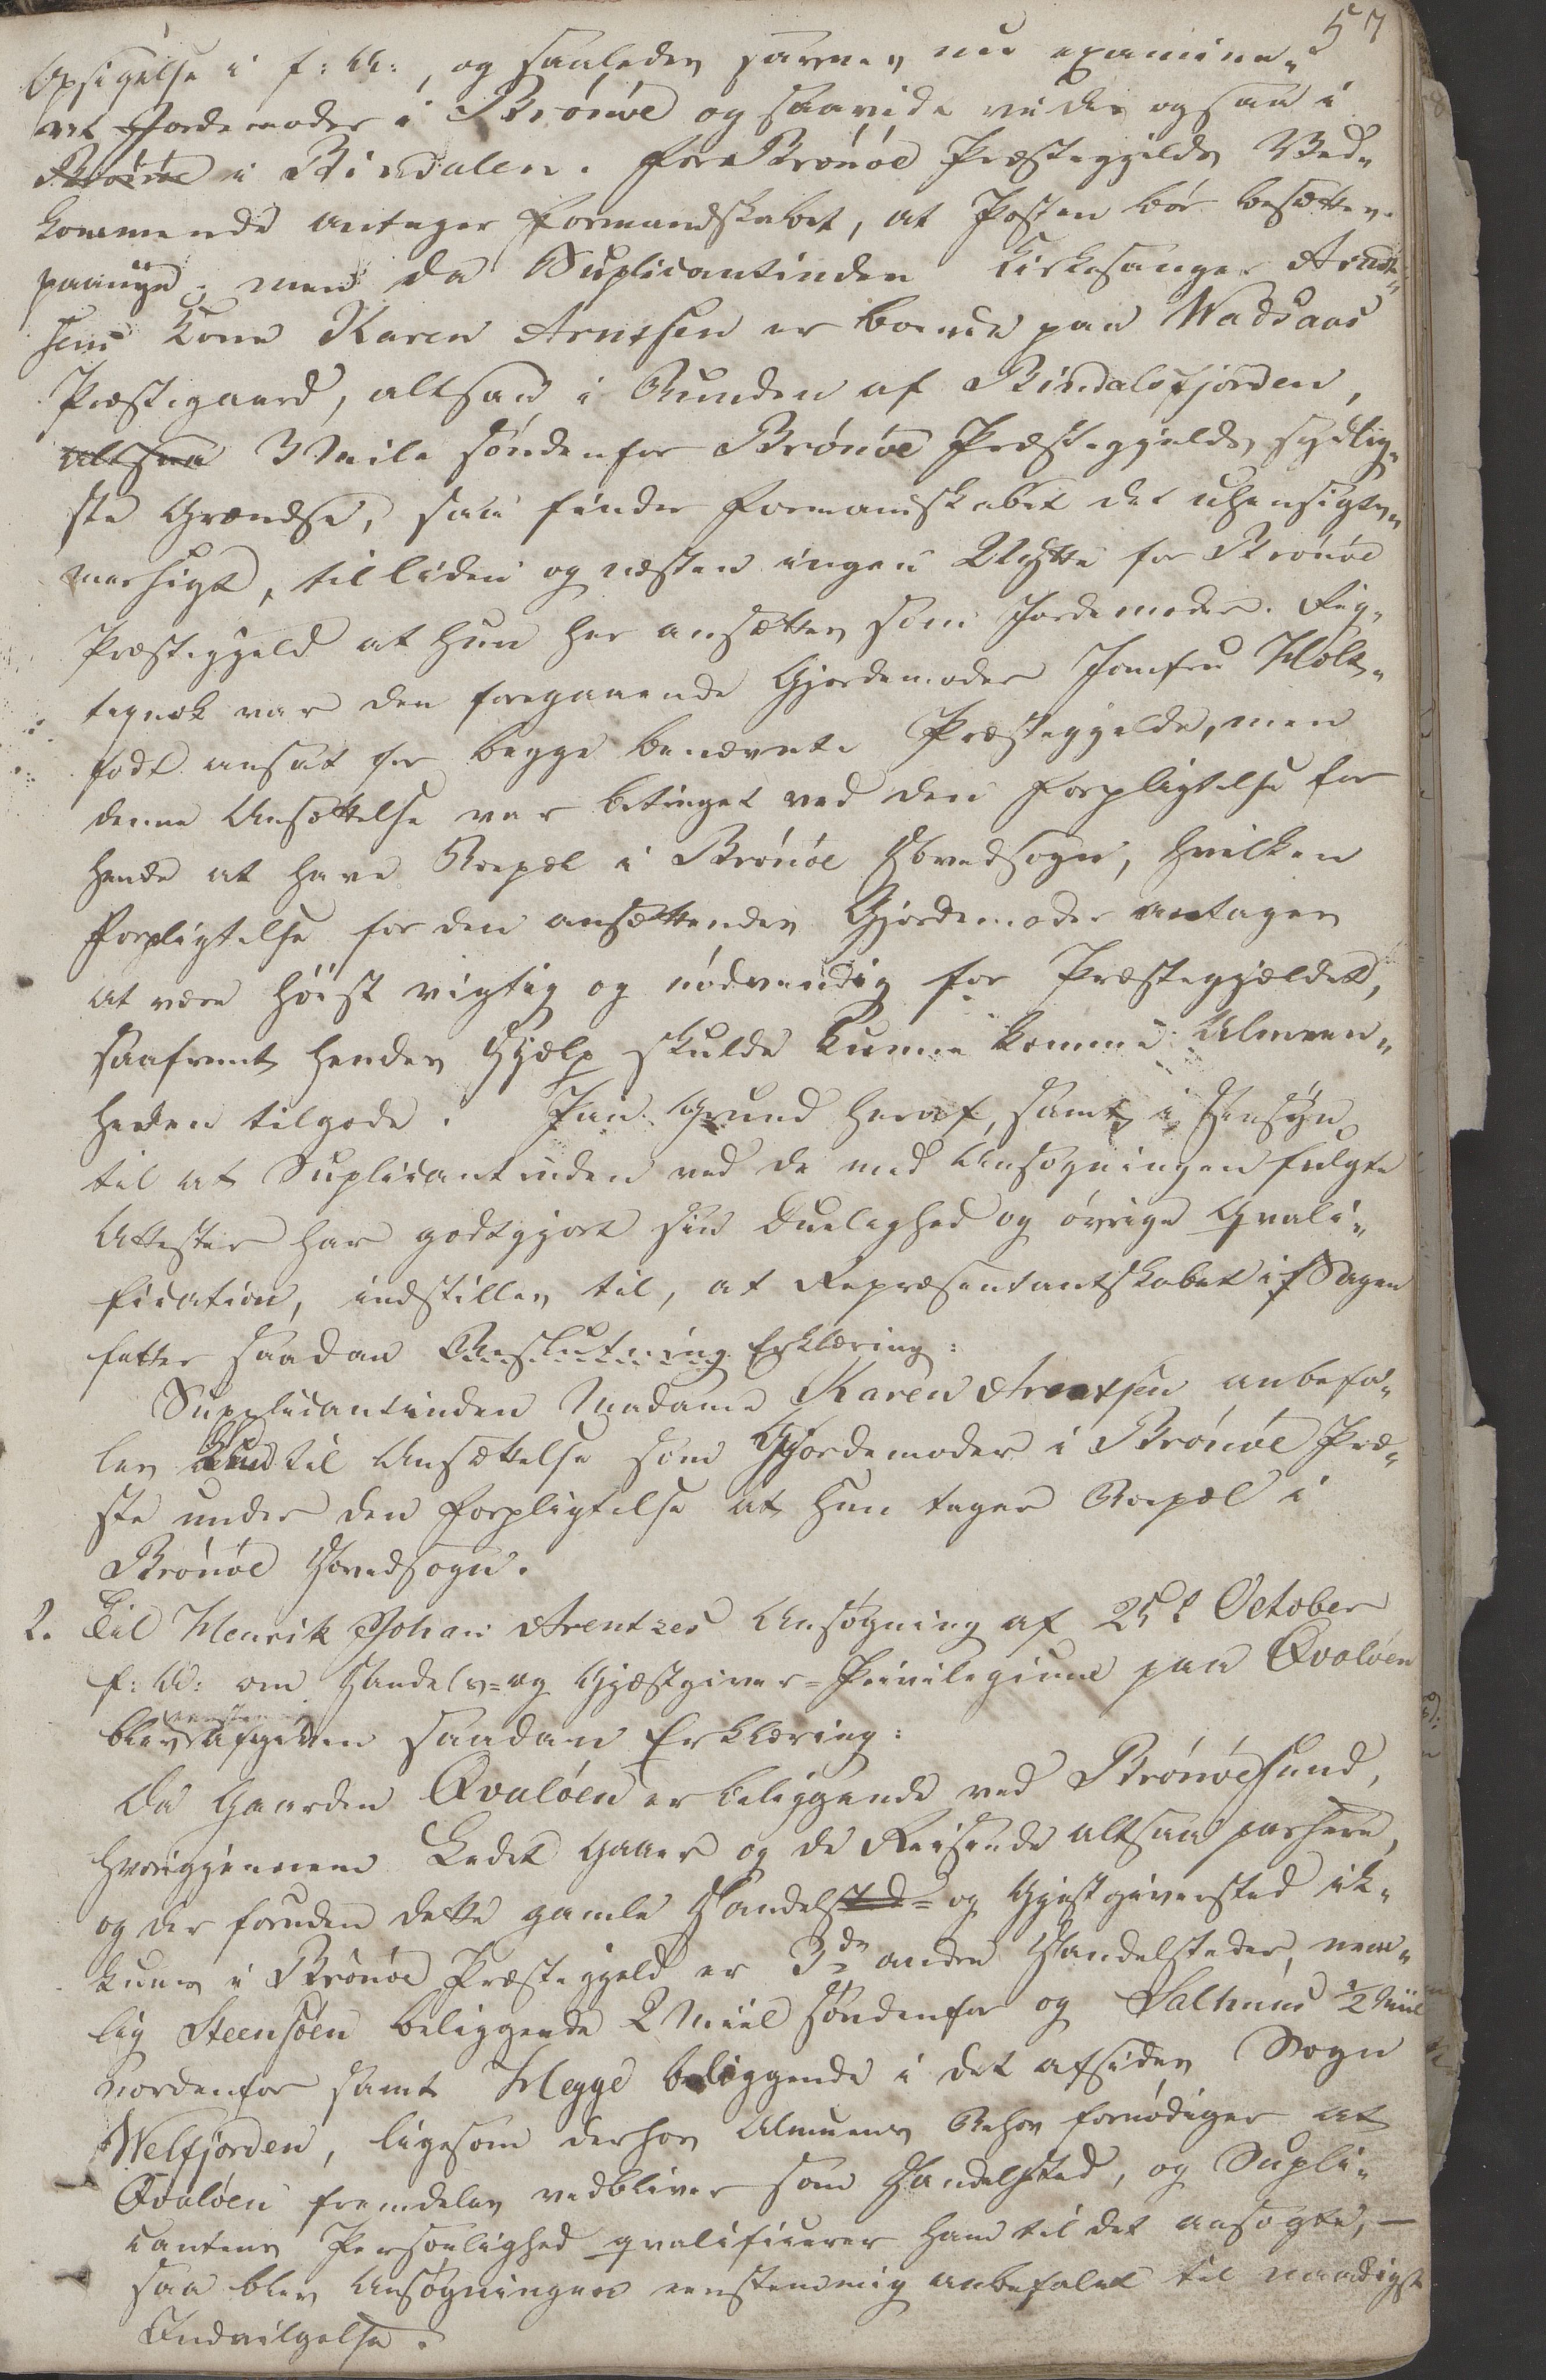 57
Opsigelse i f: A:, og saaledes savnes nu examine„
ret Jordemoder i Brönöe og saavidt vides ogsaa i
Brönöe i Bindalen. For Brönöe Præstegjelds Ved„
kommende antager Formandskabet, at Posten bör besættes
paanye; men da Suplicantinden Kirkesanger Arndt„
sens Kone Karen Arntsen er boende paa Wadsaas
Præstegaard, altsaa i Bunden af Bindalsfjorden,
altsaa 3 Miile söndenfor Brönöe Præstegjelds sydlig„
ste Grændse, saa finder Formandskabet det uhensigts„
mæssigt, til liden og næsten ingen Nytte for Brönöe
Præstegjeld at hun her ansættes som Jordemoder. Rig„
tignok var den foregaaende Gjordemoder Jomfru Holt„
fodt ansat for begge benævnte Præstegjelde, men
denne Ansættelse var betinget ved den Forpligtelse for
hende at have Boepæl i Brönöe Hovedsogn, hvilken
Forpligtelse for den ansættendes Gjordemoder antages
at være höist vigtig og nödvendig for Præstegjeldet,
saafremt hendes Hjælp skulde kunne komme Almeen„
heden tilgode. Paa Grund heraf, samt i Hensyn
til at Suplicantinden ved de med Ansögningen fulgte
Attester har godtgjort sin Duelighed og övrige Qvali„
fication, indstilles til, at Repræsentantskabet i Sagen
fatter saadan Beslutning Erklæring:
Supplicantinden Madame Karen Arentsen anbefa„
les til Ansættelse som Gjordemoder i Brönöe Præ„
ste under den Forpligtelse at hun tager Boepæl i
Brönöe Hovedsogn.
2. Til Henrik Johan Arentzes Ansøgning af 25d October
f: A: om Handels- og Gjæstgiver-Privilegium paa Qvalöen
blev afgiven saadan Erklæring:
Da Gaarden Qvalöen er beliggende ved Brönöesund,
hvorigjennem Ledet gaaer og de Reisende altsaa passere,
og der foruden dette gamle Handelsted- og Gjestgiversted ik„
kuns i Brönöe Præstegjeld er 3de andre Handelsteder, nem„
lig Steensöen beliggende 2 Miil söndenfor og Salhuus ½ Miil
nordenfor samt Hegge beliggende i det afsides Sogn
Welfjorden, ligesom derhos Almuens Behov fornödiger at
Qvalöen fremdeles vedbliver som Handelsted, og Supli„
cantens Personlighed qvalificerer ham til det ansögte, —
saa blev Ansøgningen eenstemmig anbefalet til naadigst
Indvilgelse.